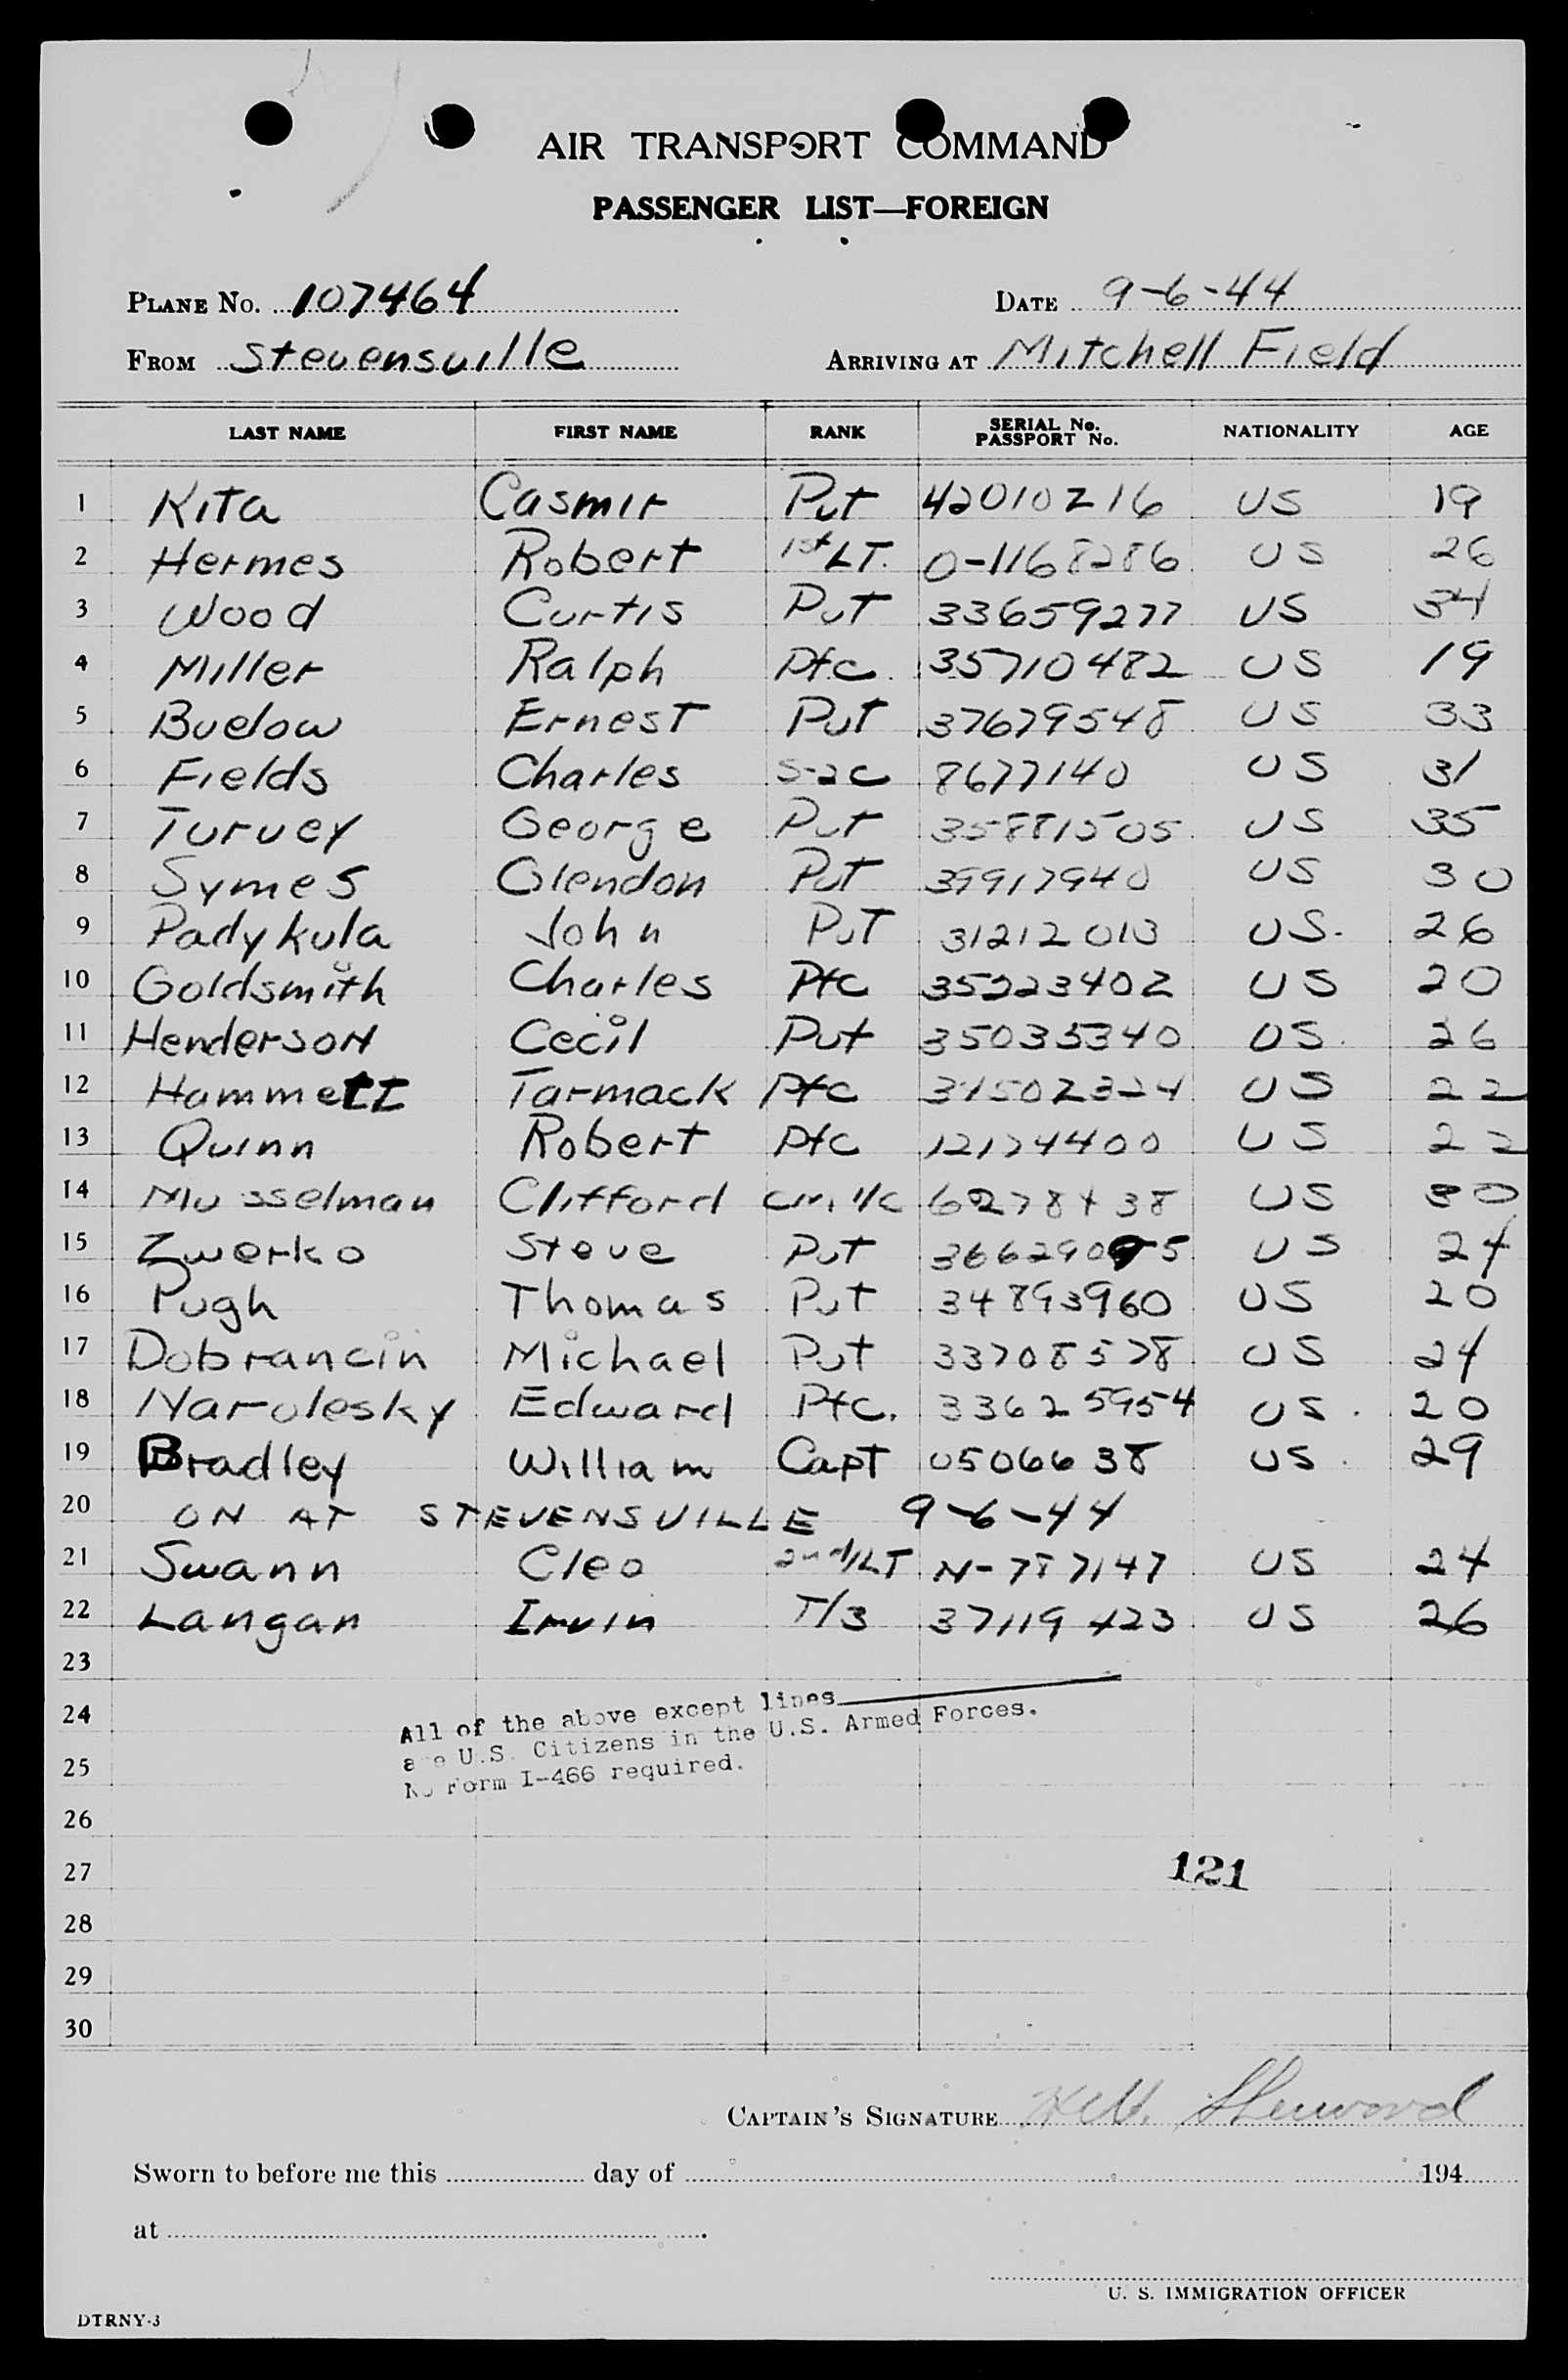 AIR TRANSPORT COMMAND
PASSENGER LIST—FOREIGN
PLANE No. 107464 DATE 9-6-44
FROM Stevensville ARRIVING AT Mitchell Field
LAST NAME FIRST NAME RANK SERIAL No. PASSPORT No. NATIONALITY AGE
1 Kita Casmir Pvt 42010216 US 19
2 Hermes Robert 1st LT. O-1168286 US 26
3 Wood Curtis Pvt 33659277 US 34
4 Miller Ralph Pfc. 35710482 US 19
5 Buelow Ernest Pvt 37679548 US 33
6 Fields Charles S-2c 8677140 US 31
7 Turvey George Pvt 35881505 US 35
8 Symes Glendon Pvt 39917940 US 30
9 Padykula John Pvt 31212013 US. 26
10 Goldsmith Charles Pfc 35223402 US 20
11 Henderson Cecil Pvt 35035340 US. 26
12 Hammett Tarmack Pfc 34502324 US 22
13 Quinn Robert Pfc 12174400 US 22
14 Musselman Clifford 6278438 US 30
15 Zwerko Steve Pvt US 24
16 Pugh Thomas Pvt 34893960 US 20
17 Dobrancin Michael Pvt 33708578 US 24
18 Narolesky Edward Pfc. 33625954 US. 20
19 Bradley William Capt 0506638 US. 29
20 ON AT STEVENSVILLE 9-6-44
21 Swann Cleo 2nd/LT N-787147 US 24
22 Langan Irvin T/3 37119423 US 26
23
24 All of the above except lines
are U.S. Citizens in the U.S. Armed Forces.
25 No Form I-466 required.
26
27 121
28
29
30
CAPTAIN'S SIGNATURE Sherwood
Sworn to before me this day of 194
at .
U. S. IMMIGRATION OFFICER
DTRNY-3